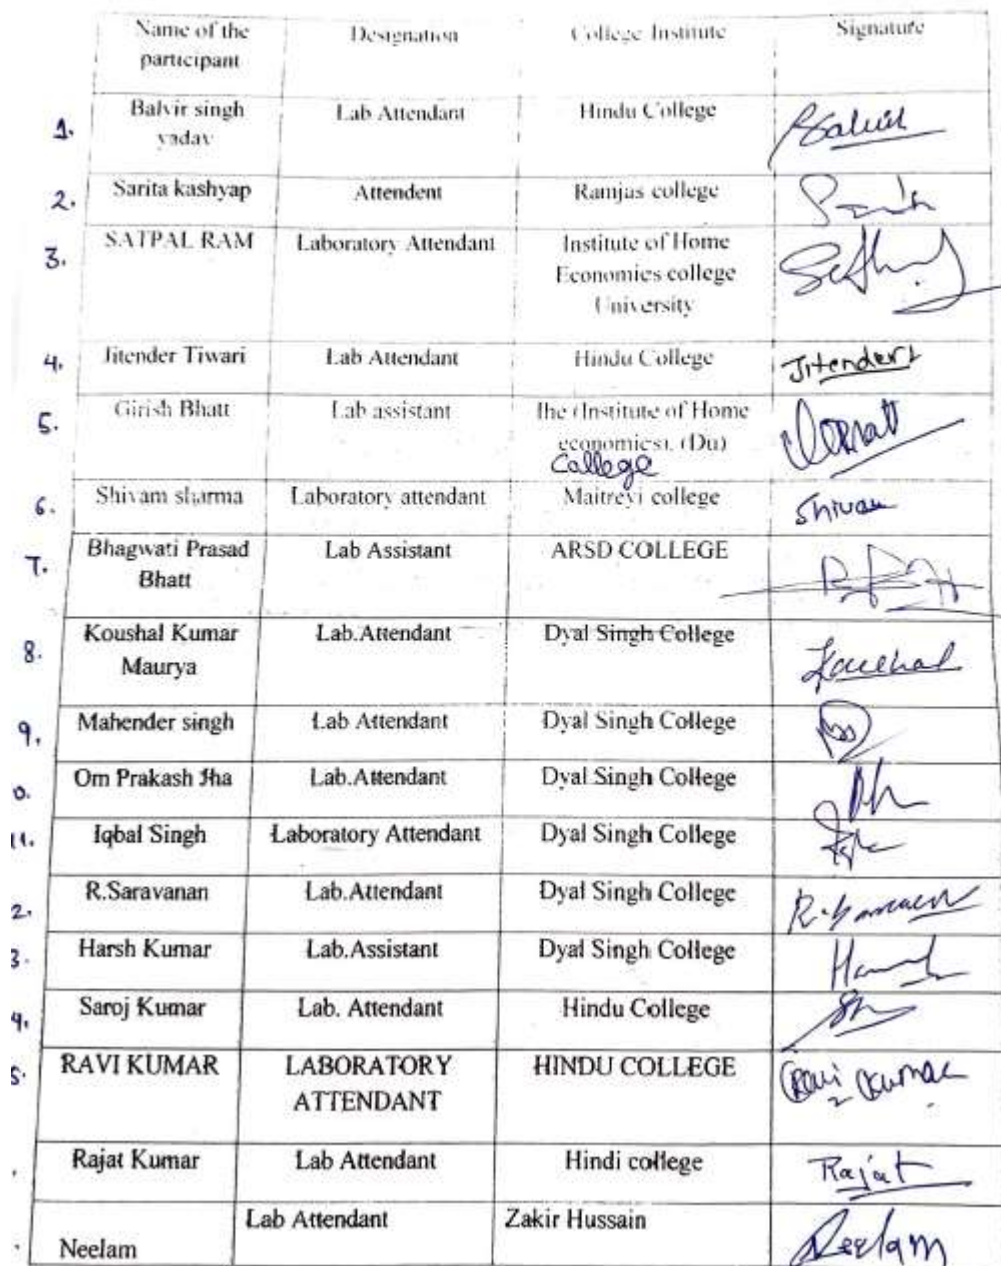 Name of the participant Designation College Institute Signature
1. Balvir singh yadav Lab Attendant Hindu College
2. Sarita kashyap Attendent Ramjas college
3. SATPAL RAM Laboratory Attendant Institute of Home Economics college University
4. Jitender Tiwari Lab Attendant Hindu College Jitender
5. Girish Bhatt Lab assistant Ihe (Institute of Home economics), (Du) College
6. Shivam sharma Laboratory attendant Maitreyi college Shivam
7. Bhagwati Prasad Bhatt Lab Assistant ARSD COLLEGE
8. Koushal Kumar Maurya Lab.Attendant Dyal Singh College Kaushal
9. Mahender singh Lab Attendant Dyal Singh College
0. Om Prakash Jha Lab.Attendant Dyal Singh College
11. Iqbal Singh Laboratory Attendant Dyal Singh College
2. R.Saravanan Lab.Attendant Dyal Singh College
3. Harsh Kumar Lab.Assistant Dyal Singh College
4. Saroj Kumar Lab. Attendant Hindu College
5. RAVI KUMAR LABORATORY ATTENDANT HINDU COLLEGE Ravi Kumar
Rajat Kumar Lab Attendant Hindi college Rajat
Neelam Lab Attendant Zakir Hussain Neelam